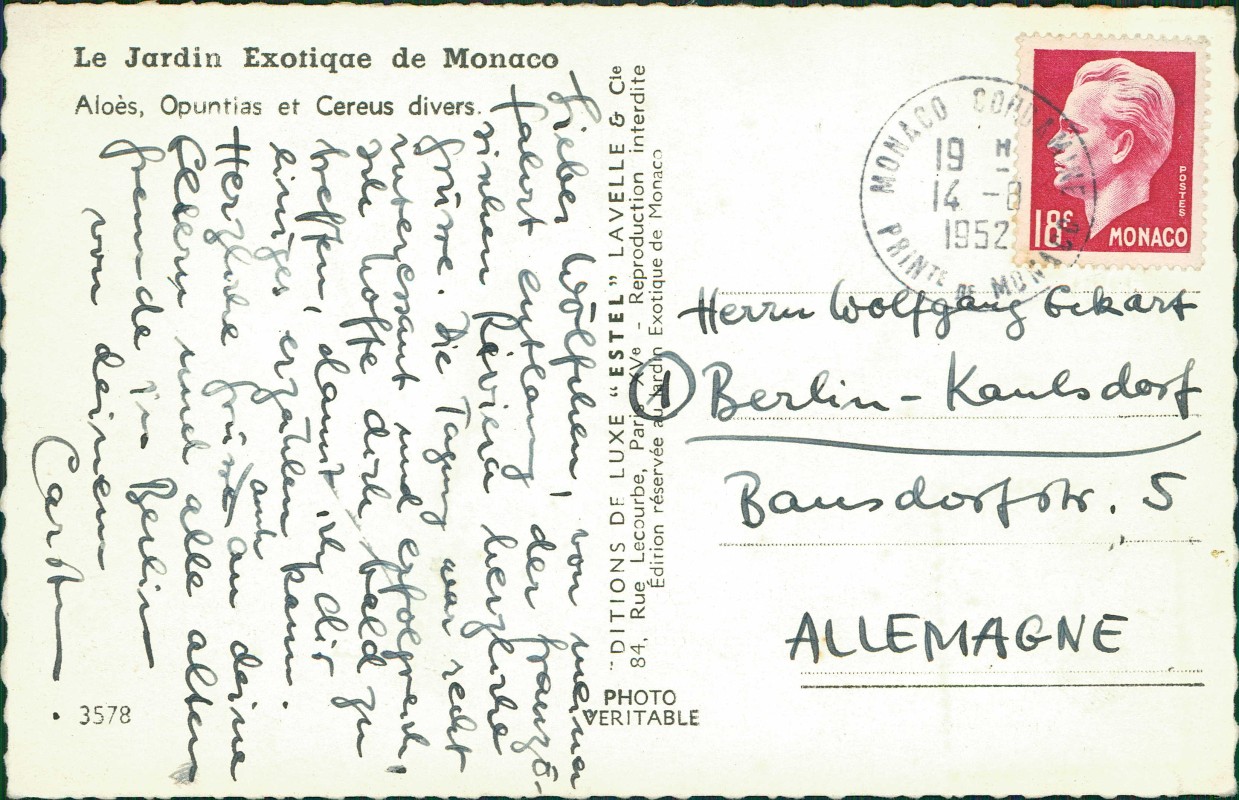 Le Jardin Exotiqae de Monaco
Aloès, Opuntias et Cereus divers.
Lieber Wölfchen, von meiner
Fahrt entlang der franzö-
sischen Riviera herzliche
Grüsse. Die Tagung war recht
interessant und erfolgreich,
ich hoffe dich bald zu
treffen, damit ich dir
einiges erzählen kann.
Herzliche Grüsse auch an deine
Eltern und alle alten
Freunde in Berlin
von deinem
Carst
3578
"DITIONS DE LUXE "ESTEL" LAVELLE & Cie
84, Rue Lecourbe, Paris XVe - Reproduction interdite
Édition réservée au Jardin Exotique de Monaco
PHOTO
VERITABLE
MONACO CONDAMINE
19 H
14 -8
1952
PRINTÉ DE MONACO
POSTES
18F
MONACO
Herrn Wolfgang Eckart
1 Berlin - Kaulsdorf
Bausdorfstr. 5
ALLEMAGNE